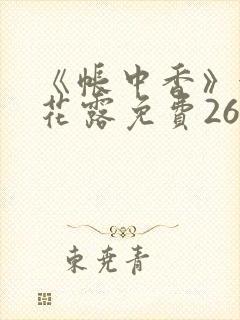 《帐中香》
花露免費26
東尭青